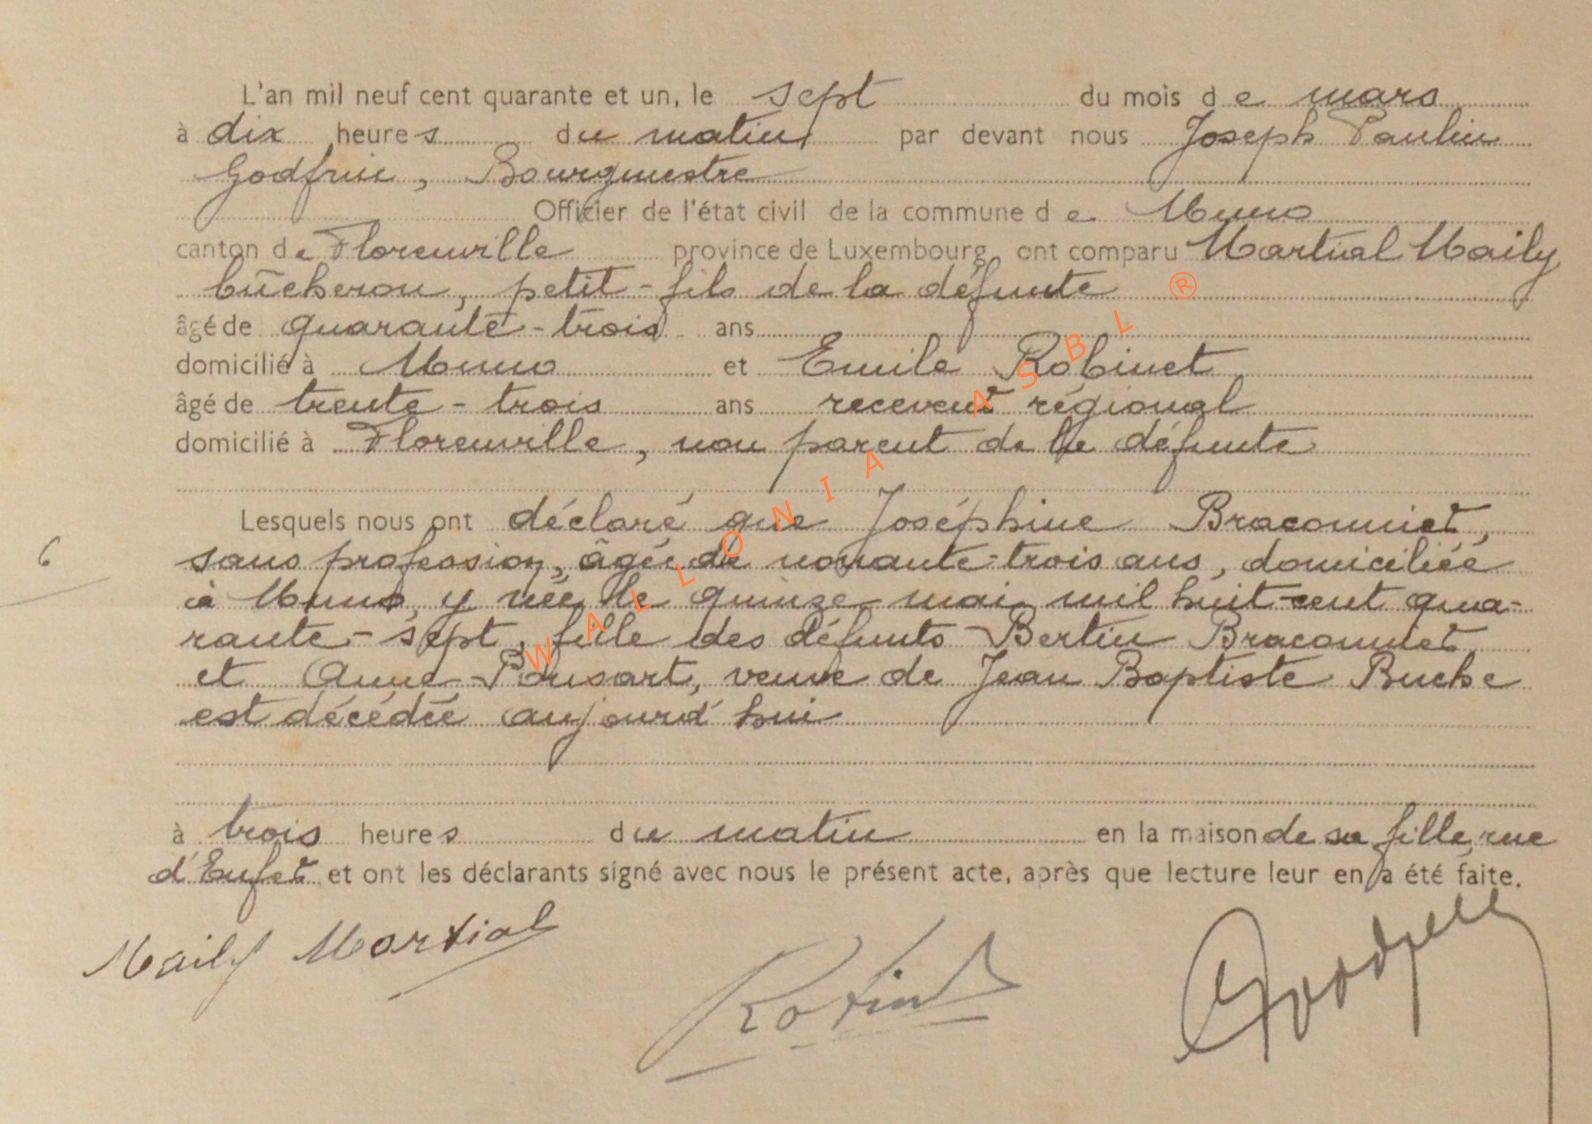 L'an mil neuf cent quarante et un, le sept du mois de mars
à dix heures du matin par devant nous Joseph Paulin
Godfrin, Bourgmestre
Officier de l'état civil de la commune de Muno
canton de Florenville province de Luxembourg ont comparu Martial Maily
bûcheron, petit-fils de la défunte ®
âgé de quarante-trois ans
domicilié à Muno et Emile Robinet
âgé de trente-trois ans receveur régional
domicilié à Florenville, non parent de la défunte
Lesquels nous ont déclaré que Joséphine Braconnier,
6 sans profession, âgée de nonante-trois ans, domiciliée
à Muno, y née le quinze mai mil huit-cent qua-
rante-sept, fille des défunts Bertin Braconnier
et Anne Ponsart, veuve de Jean Baptiste Buche
est décédée aujourd'hui
à trois heures du matin en la maison de sa fille, rue
et ont les déclarants signé avec nous le présent acte, après que lecture leur en a été faite.
Maily Martial
WALLONIA ASBL